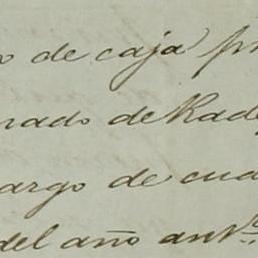 o de caja pr
nado de Rade
argo de cua
del año antr.